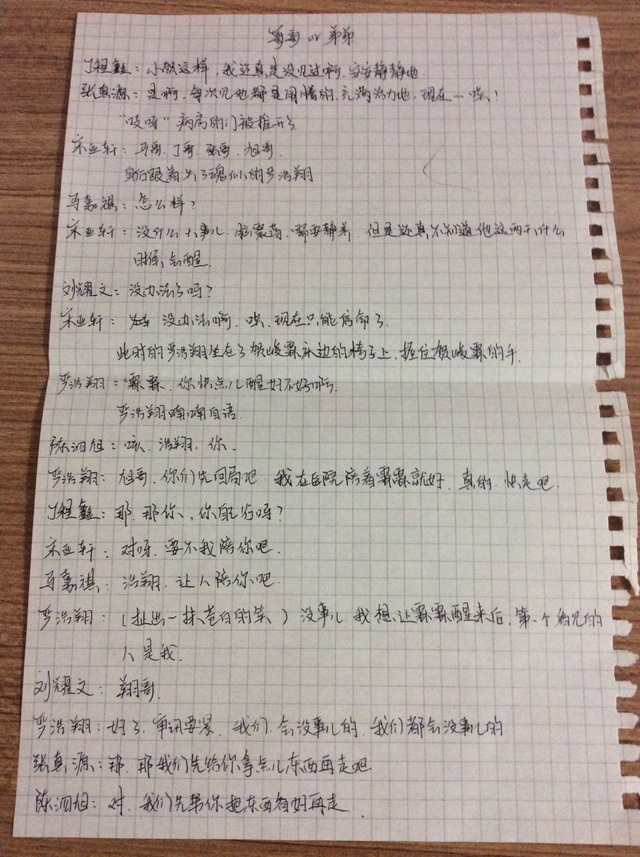 哥哥 or 弟弟
丁程鑫：小贺这样，我还真是没见过啊，安安静静地
张真源：是啊，每次见他都是用情的，充满活力地，现在……唉！
"吱呀"病房的门被推开了
宋亚轩：马哥、丁哥、张哥、旭哥、
身后跟着少了魂似的的严浩翔
马嘉祺：怎么样？
宋亚轩：没什么大事儿，但是还真不知道他这两个什么
时候会醒
刘耀文：没办法了吗？
宋亚轩：没办法啊，唉，现在只能信命了
此时的严浩翔坐在了贺峻霖床边的椅子上，握住贺峻霖的手
严浩翔：霖霖，你快点儿醒好不好啊
严浩翔喃喃自语
陈泗旭：咳、浩翔，你、
严浩翔：旭哥，你们先回局吧 我在医院陪着霖霖就好，真的，快走吧
丁程鑫：那，那你、你能行吗？
宋亚轩：对呀，要不我陪你吧
马嘉祺：浩翔，让人陪你吧
严浩翔：（扯出一抹苍白的笑）没事儿 我想让霖霖醒来后，第一个的
人是我
刘耀文：翔哥
严浩翔：好了，审讯要紧，我们会没事儿的，我们都会没事儿的
张真源：那，那我们先给你拿点儿东西再走吧
陈泗旭：对，我们先帮你把东西看好再走